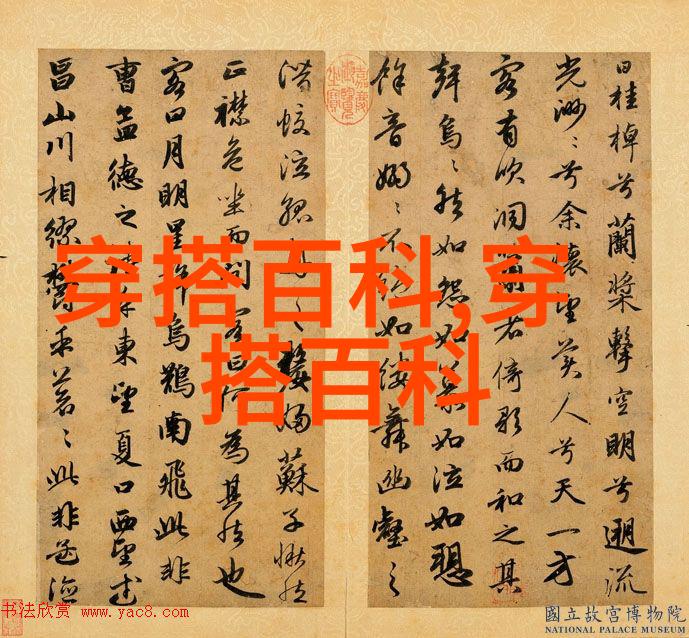 曰桂棹兮蘭槳擊空明兮遡流
光渺〻兮余懷望美人兮天一方
客有吹洞簫者倚歌而和之其
聲烏〻然如怨如慕如泣如愬
餘音嫋〻不絕如縷舞幽壑之
潛蛟泣孤舟之嫠婦蘇子愀然
正襟危坐而問客曰何為其然也
客曰月明星稀烏鵲南飛此非
曹孟德之詩乎東望夏口西望武
昌山川相繆鬱乎蒼〻此非孟德
嘉慶御覽之寶
穿搭百科,穿
搭百科
书法欣赏 www.yac8.com
國立故宮博物院
NATIONAL PALACE MUSEUM